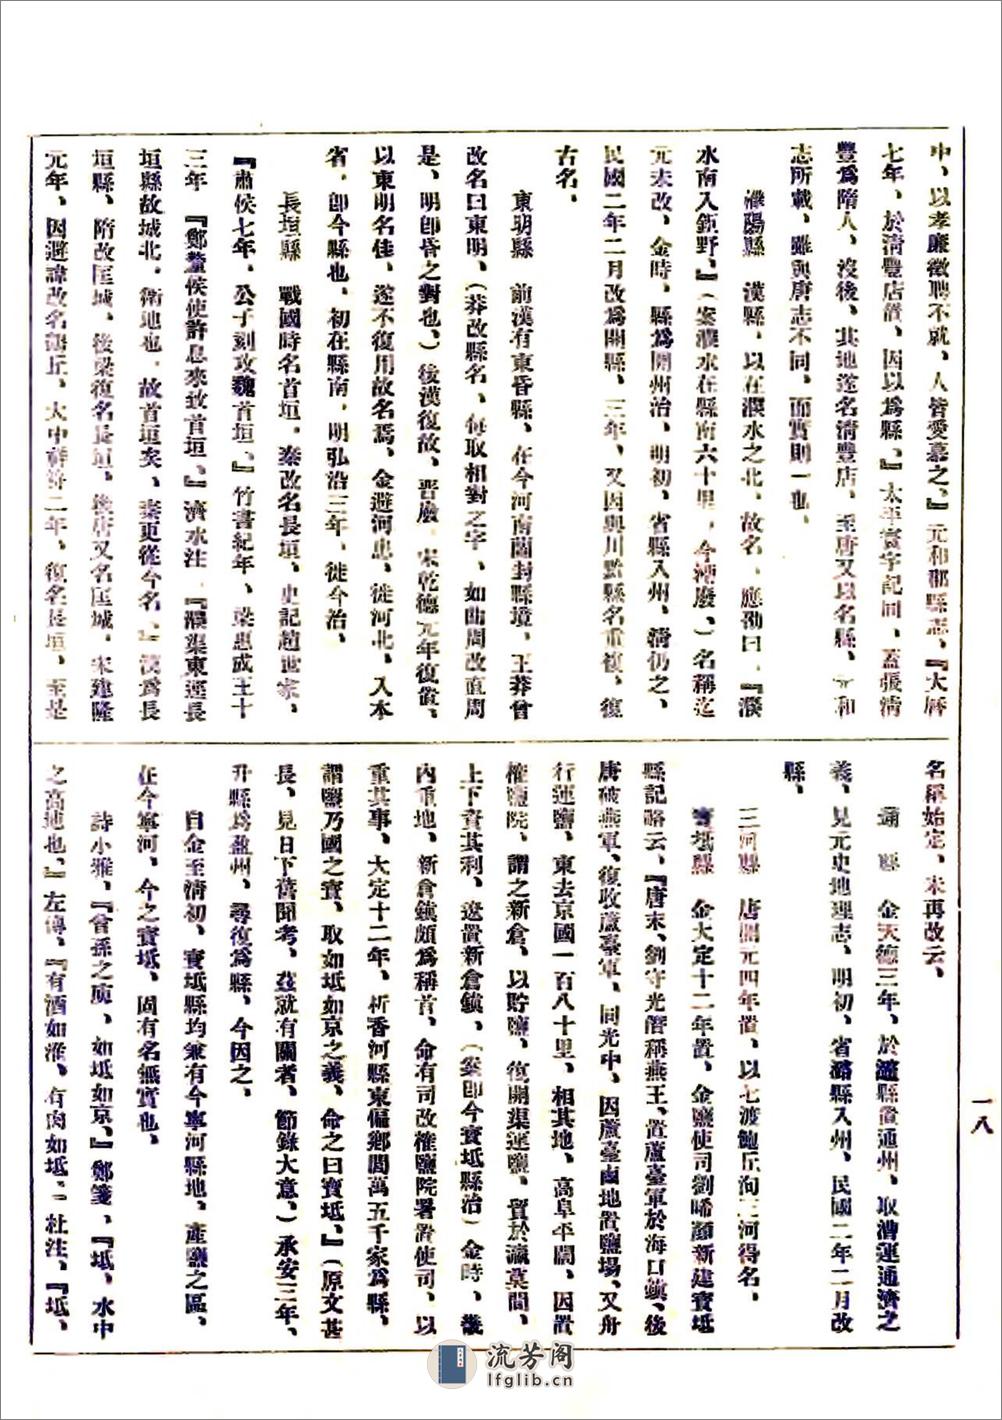 中、以孝廉徵聘不就、人皆愛慕之、』元和郡縣志、『大曆
七年、於淸豐店置、因以爲縣、』太平寰宇記同、蓋張淸
豐爲隋人、沒後、其地遂名淸豐店、至唐又以名縣、元和
志所載、雖與唐志不同、而實則一也、
濮陽縣　漢縣、以在濮水之北、故名、應劭曰、『濮
水南入鉅野、』（案濮水在縣南六十里、今湮廢、）名稱迄
元未改、金時、縣爲開州治、明初、省縣入州、淸仍之、
民國二年二月改爲開縣、三年、又因與川黔縣名重複、復
古名、
東明縣　前漢有東昏縣、在今河南蘭封縣境、王莽曾
改名曰東明、（莽改縣名、每取相對之字、如曲周改直周
是、明卽昏之對也、）後漢復故、晉廢、宋乾德元年復置、
以東明名佳、遂不復用故名焉、金避河患、徙河北、入本
省、卽今縣也、初在縣南、明弘治三年、徙今治、
長垣縣　戰國時名首垣、秦改名長垣、史記趙世家、
『肅侯七年、公子刻攻魏首垣、』竹書紀年、梁惠成王十
三年『鄭釐侯使許息來致首垣、』濟水注、『濮渠東逕長
垣縣故城北、衛地也、故首垣矣、秦更從今名、』漢爲長
垣縣、隋改匡城、後梁復名長垣、後唐又名匡城、宋建隆
元年、因避諱改名鶴丘、大中祥符二年、復名長垣、至是
名稱始定、未再改云、
通　縣　金天德三年、於潞縣置通州、取漕運通濟之
義、見元史地理志、明初、省潞縣入州、民國二年二月改
縣、
三河縣　唐開元四年置、以七渡鮑丘洵三河得名、
寶坻縣　金大定十二年置、金鹽使司劉晞顏新建寶坻
縣記略云、『唐末、劉守光僭稱燕王、置蘆臺軍於海口鎭、後
唐破燕軍、復收蘆臺軍、同光中、因蘆臺鹵地置鹽場、又舟
行運鹽、東去京國一百八十里、相其地、高阜平闊、因置
榷鹽院、謂之新倉、以貯鹽、復開渠運鹽、貿於瀛莫間、
上下資其利、遼置新倉鎭、（案卽今寶坻縣治）金時、畿
內重地、新倉鎭頗爲稱首、命有司改榷鹽院署置使司、以
重其事、大定十二年、析香河縣東偏鄉閭萬五千家爲縣、
謂鹽乃國之寶、取如坻如京之義、命之曰寶坻、』（原文甚
長、見日下舊聞考、茲就有關者、節錄大意、）承安三年、
升縣爲盈州、尋復爲縣、今因之、
自金至淸初、寶坻縣均兼有今寧河縣地、產鹽之區、
在今寧河、今之寶坻、固有名無實也、
詩小雅、『曾孫之庾、如坻如京、』鄭箋、『坻、水中
之高地也、』左傳、『有酒如淮、有肉如坻、』杜注、『坻、
一八
流芳阁
lfglib.cn